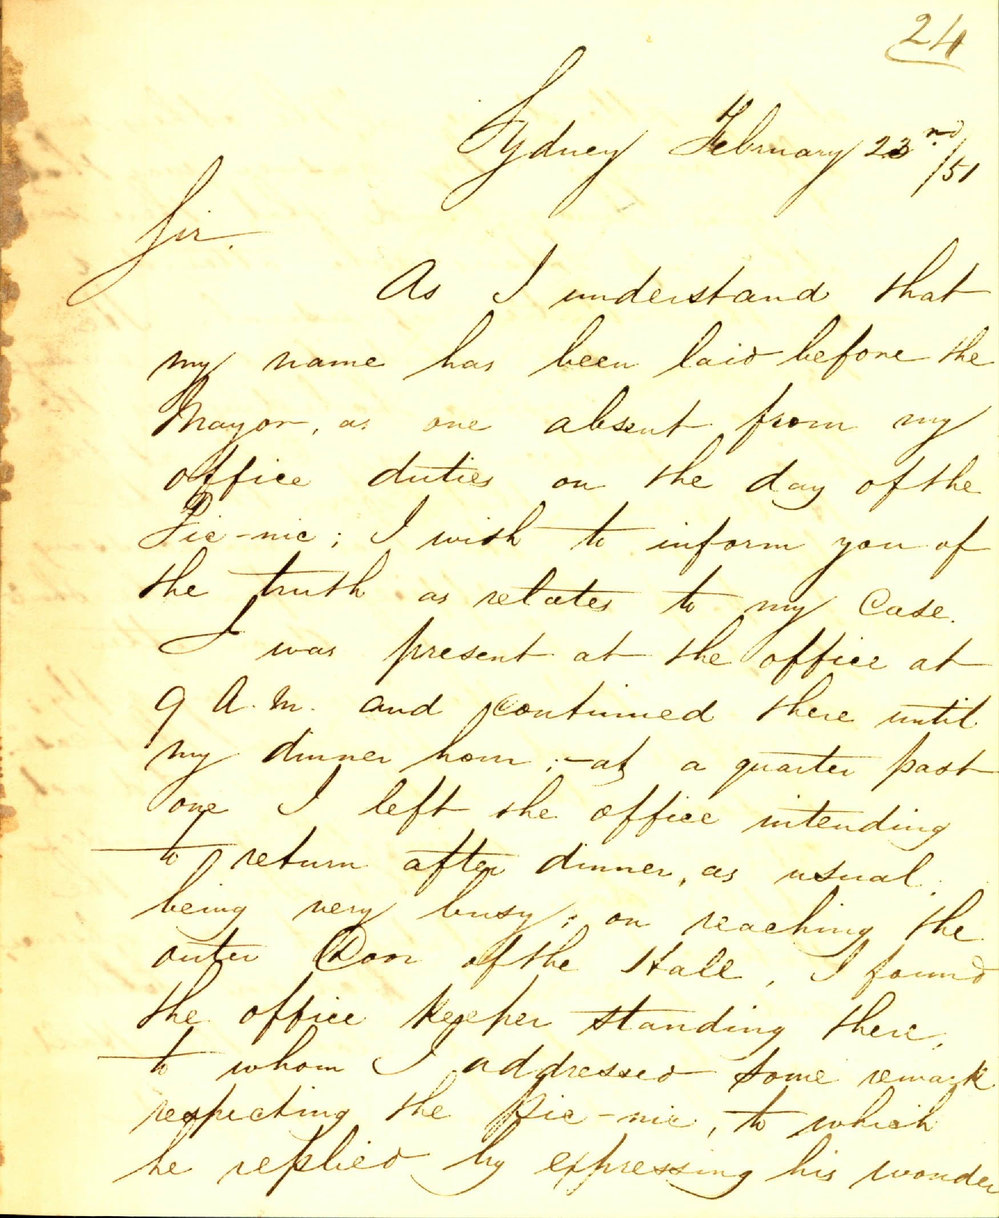 24
Sydney February 23nd/51
Sir.
As I understand that
my name has been laid before the
Mayor, as one absent from my
office duties on the day of the
Pic-nic; I wish to inform you of
the truth as relates to my Case.
I was present at the office at
9 A.M. and continued there until
my dinner hour; - at a quarter past
one I left the office intending
to return after dinner, as usual,
being very busy; on reaching the
outer Door of the Hall, I found
the office Keeper standing there,
to whom I addressed some remark
respecting the Pic-nic, to which
he replied by expressing his wonder